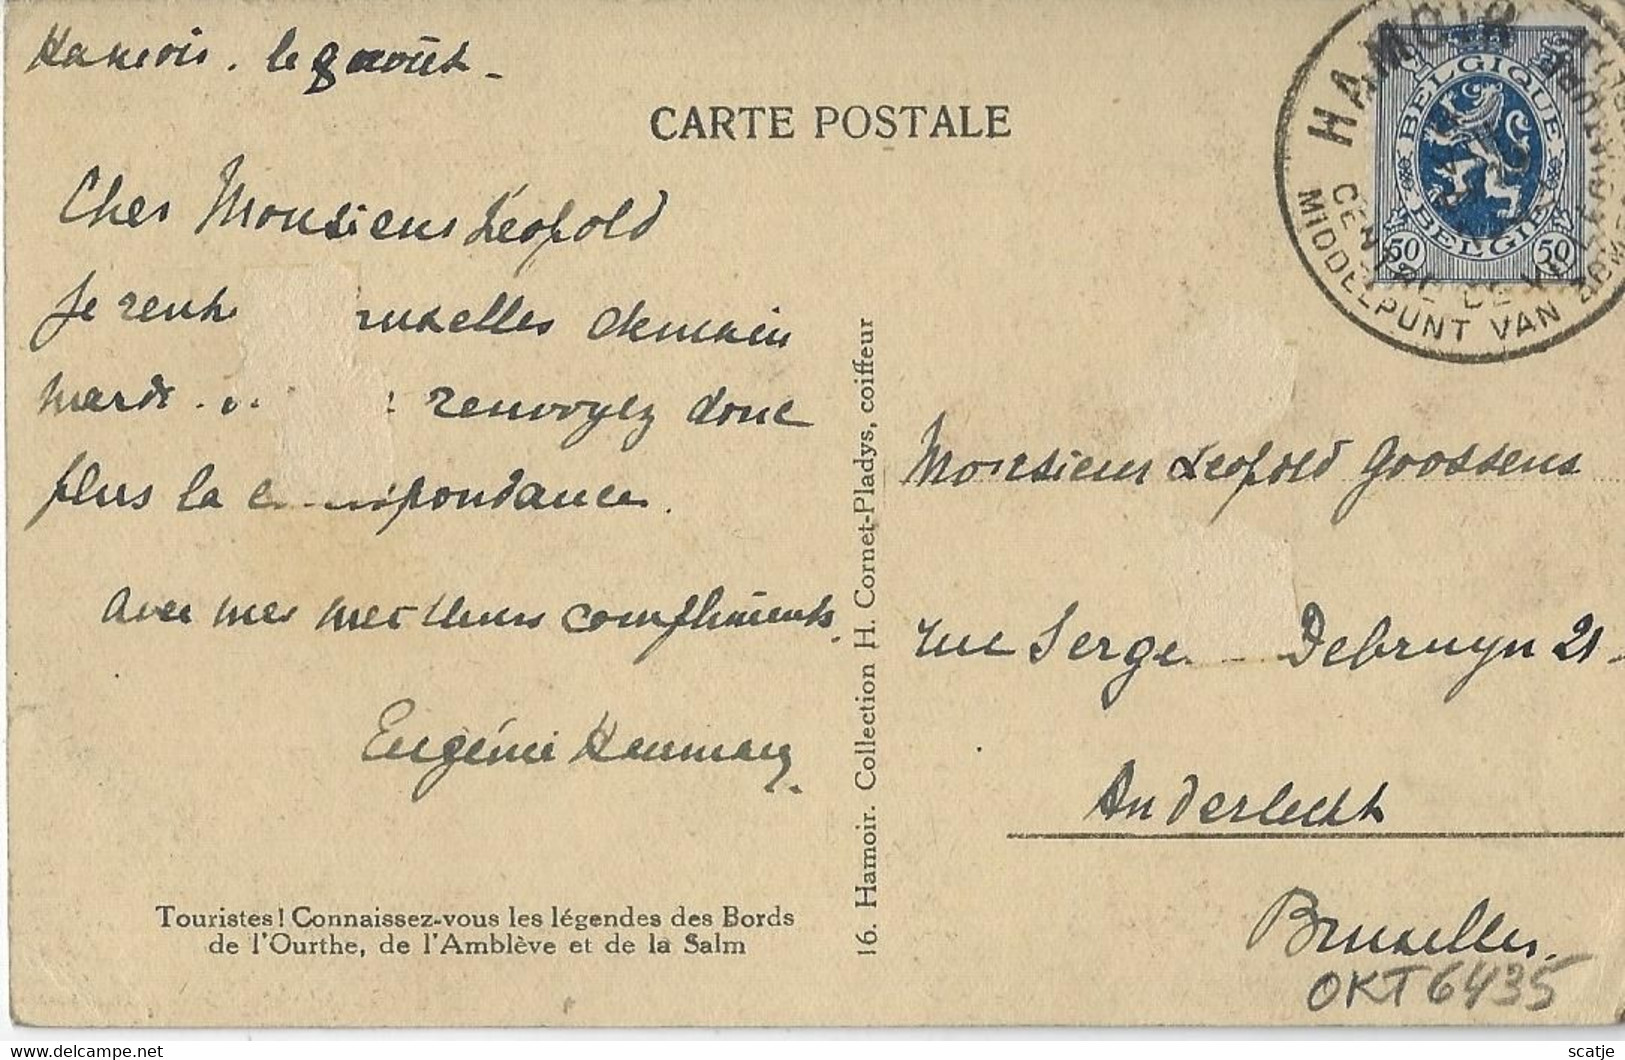 le 8 août -
CARTE POSTALE
HAMOIR
BELGIQUE
BELGIE
50 50
CENTRE DE
MIDDELPUNT VAN
Cher Monsieur Léopold
Je rent ruxelles demain
mardi renvoyez donc
plus la c respondance.
Avec mes meilleurs compliments.
Eugénie
Touristes! Connaissez-vous les légendes des Bords
de l'Ourthe, de l'Amblève et de la Salm
16. Hamoir. Collection H. Cornet-Pladys, coiffeur
Monsieur Léopold Goossens
rue Serge Debruyn 21
Anderlecht
Bruxelles.
OKT6435
scatje